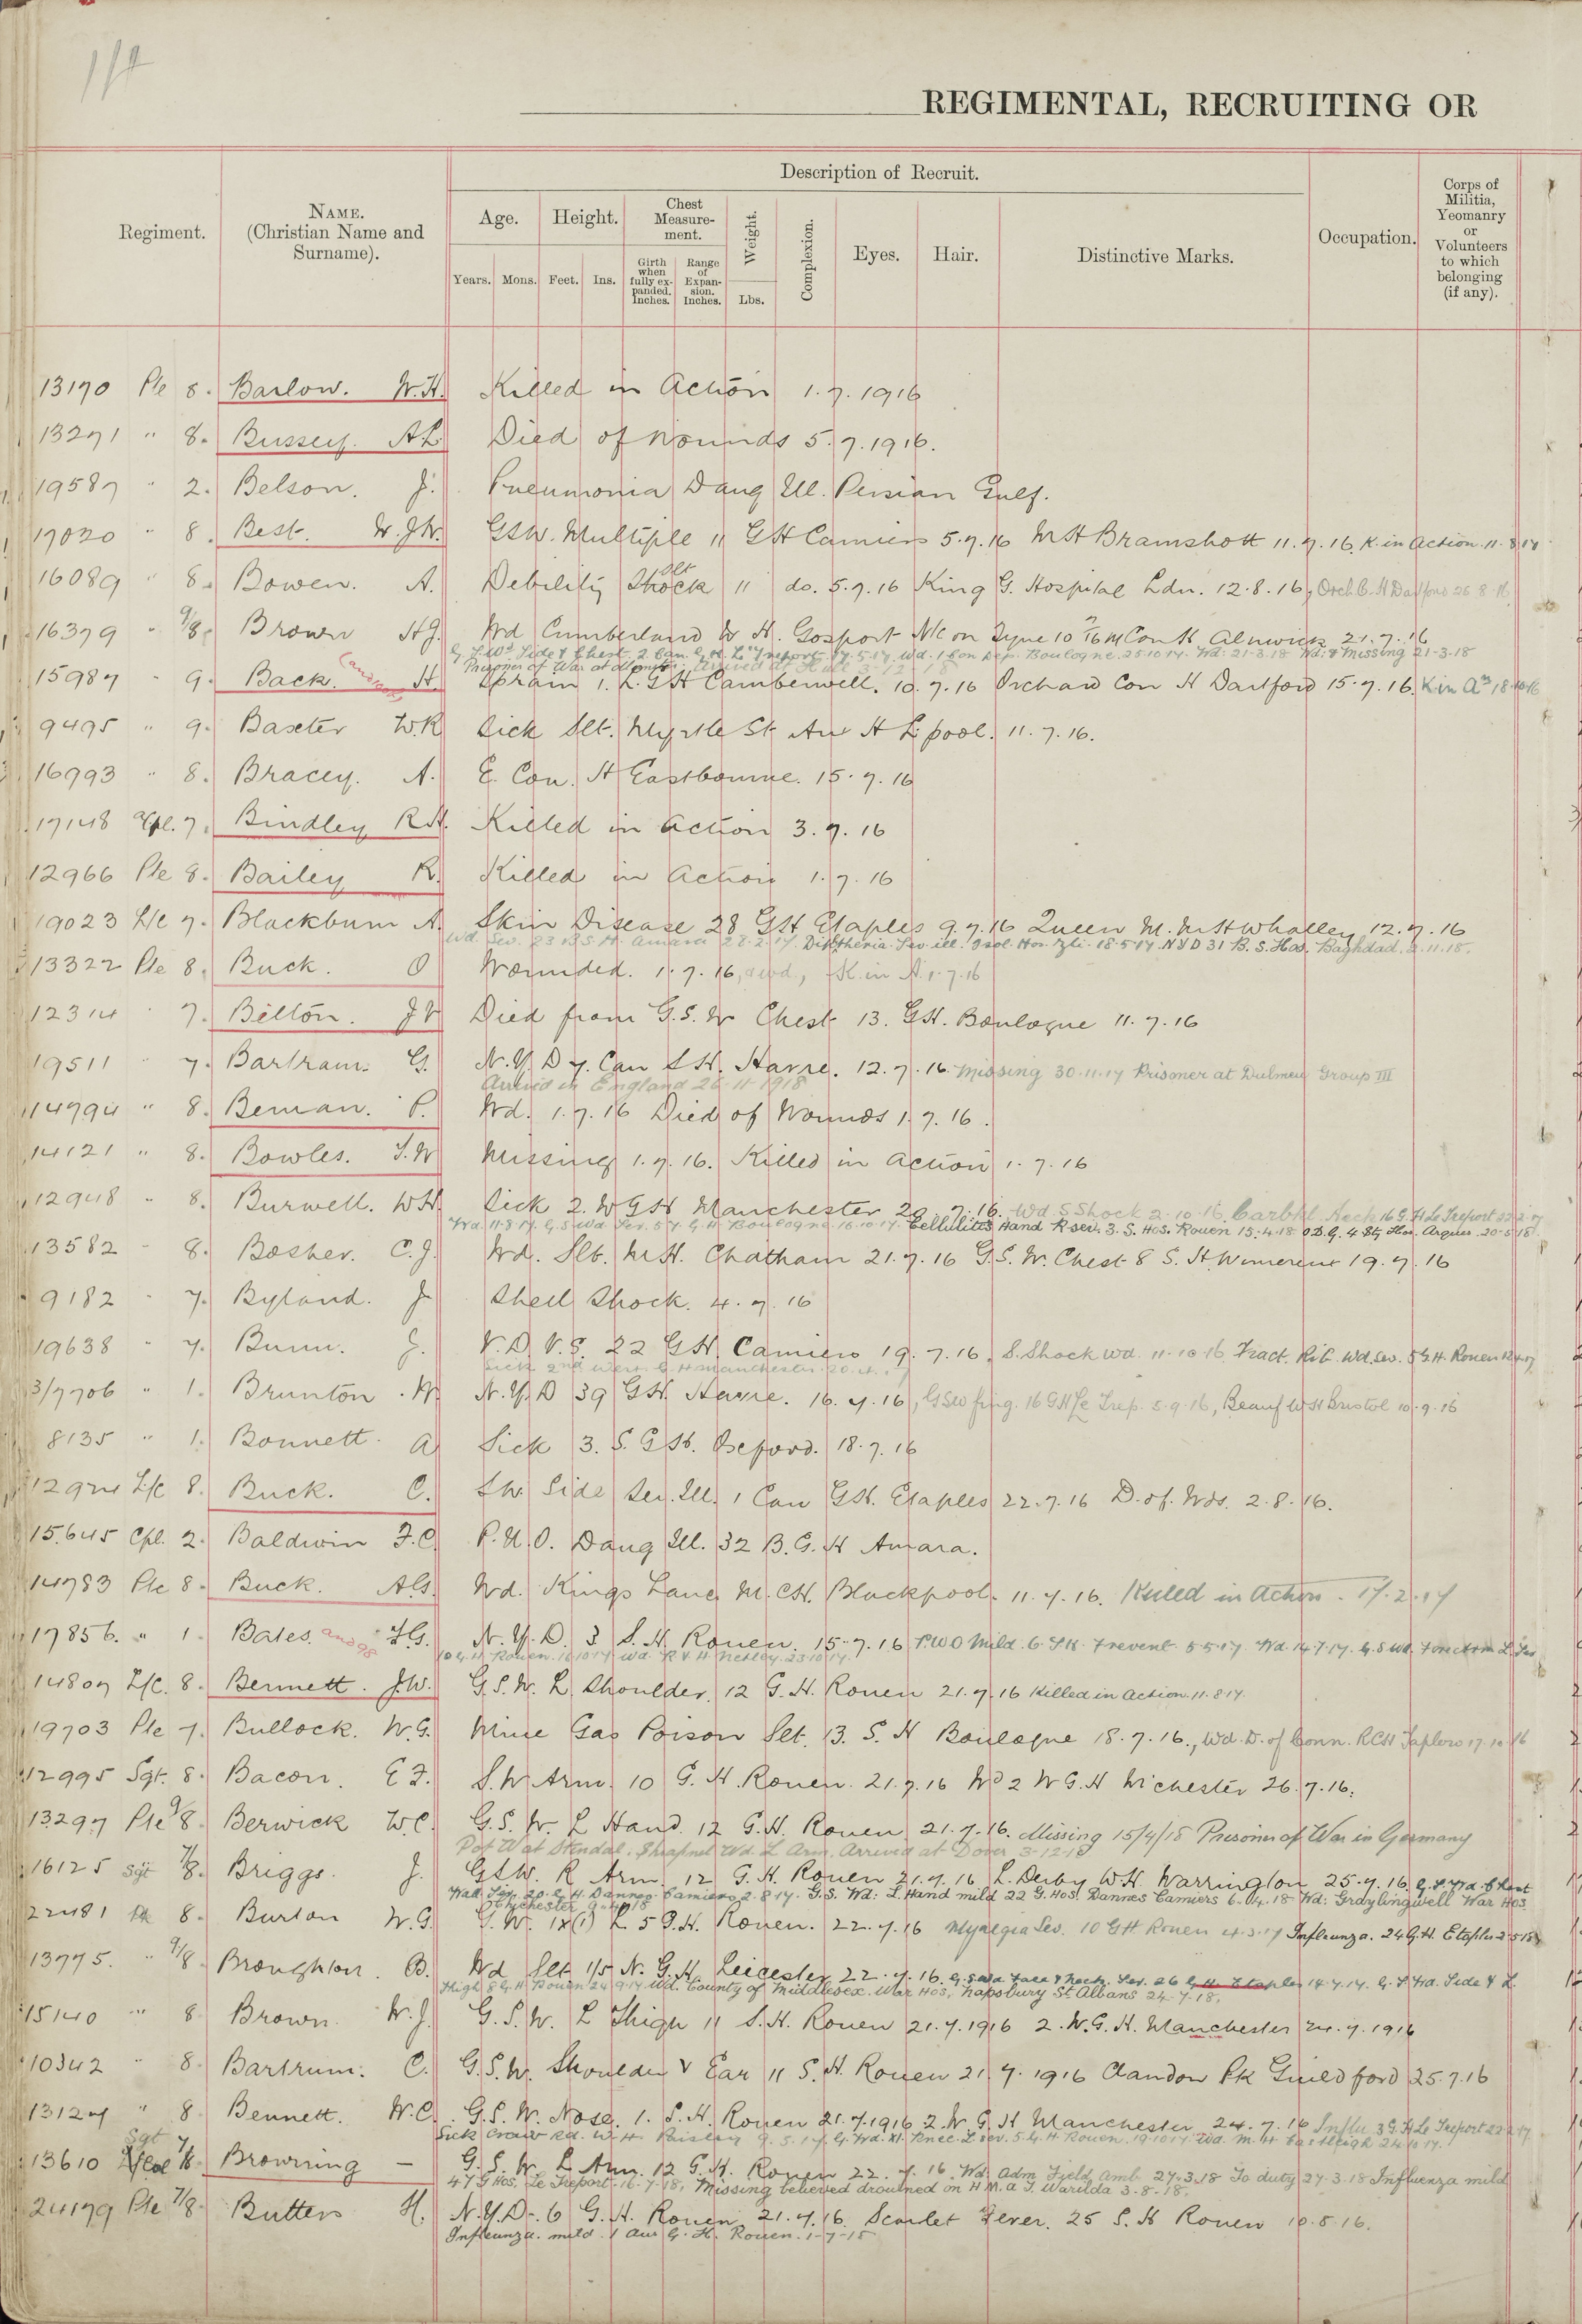 1/4
REGIMENTAL, RECRUITING OR
Description of Recruit.
Regiment.
NAME.
(Christian Name and
Surname).
Age.
Height.
Chest
Measure-
ment.
Weight.
Complexion.
Eyes.
Hair.
Distinctive Marks.
Occupation.
Corps of
Militia,
Yeomanry
or
Volunteers
to which
belonging
(if any).
Years.
Mons.
Feet.
Ins.
Girth
when
fully ex-
panded.
Inches.
Range
of
Expan-
sion.
Inches.
Lbs.
13170 Pte 8. Barlow. W.H. Killed in Action 1.7.1916
13271 " 8. Bussey. A.L. Died of Wounds 5.7.1916.
19587 " 2. Belson. J. Pneumonia Dang Ill. Persian Gulf.
17020 " 8. Best. W.J.W. GSW. Multiple 11 GH Camiers 5.7.16 M H Bramshott 11.7.16. K. in Action. 11.8.17
16089 " 8. Bowen. A. Debility Slt Shock 11 do. 5.7.16 King G. Hospital Ldn. 12.8.16, Orch. C. H Dartford 26.8.16.
16379 " 9/8. Brown H.J. Wd Cumberland W H. Gosport N/c on Tyne 10 7/16 M Con H Alnwick 21.7.16
G.S.Wd Side & Chest. 2 Can. G. H. Le Treport 17.5.17. Wd. 1 Con Dep. Boulogne. 25.10.17. Wd: 21-3-18 Wd: & Missing 21-3-18
Prisoner of War at Arrived at Hull 3-12-18
15987 " 9. Back. H. Sprain 1. L. G H Camberwell. 10.7.16 Orchard Con H Dartford 15.7.16. K in An 18.10.16
9495 " 9. Baxter W.R Sick Slt. Myrtle St Aux H L'pool. 11.7.16.
16993 " 8. Bracey. A. E. Con. H Eastbourne. 15.7.16
17148 Cpl. 7. Bindley R.H. Killed in action 3.7.16
12966 Pte 8. Bailey R. Killed in Action 1.7.16
19023 L/c 7. Blackburn A. Skin Disease 28 GH Etaples 9.7.16 Queen M. M H Whalley 12.7.16
Wd. Sev. 23 B.S.H. Amara 28.2.17. Diphtheria Sev ill. Isol. Hos. 18.5.17. NYD 31 B. S. Hos. Baghdad. 2.11.18.
13322 Pte 8. Buck. O Wounded. 1.7.16, K. in A. 1.7.16
12314 " 7. Bilton. J V Died from G.S.W Chest 13. GH. Boulogne 11.7.16
19511 " 7. Bartram. G. N.Y.D 7. Can S H. Havre. 12.7.16. Missing 30.11.17 Prisoner at Dulmen Group III
Arrived in England 26-11-1918
14794 " 8. Beman. P. Wd. 1.7.16 Died of Wounds 1.7.16.
14121 " 8. Bowles. S.W Missing 1.7.16. Killed in action 1.7.16
12948 " 8. Burwell. W.H. Sick 2. W G H Manchester 20.7.16. Wd S Shock 2.10.16. Carbkl Neck 16 G.H Le Treport 22.2.17
Wd. 11.8.17. G.S Wd. Sev. 57. G. H. Boulogne. 16.10.17. Cellulitis Hand R sev. 3. S. Hos. Rouen 13.4.18 D.G. 4 Stg Hos. Arques. 20-5-18.
13582 " 8. Bosher. C.J. Wd. Slt. M.H. Chatham 21.7.16 G.S.W. Chest 8 S. H. Wimereux 19.7.16
9182 " 7. Byland. J Shell Shock. 4.7.16
19638 " 7. Bunn. J. V.D. V.S. 22 GH. Camiers 19.7.16. S. Shock Wd. 11.10.16. Fract. Rib. Wd. sev. 5 G.H. Rouen
Sick 2nd West. G. H Manchester. 20.4.17
3/7706 " 1. Brunton. W N.Y.D 39 GH. Havre. 16.7.16, GSW fing. 16 GH Le Trep. 5.9.16, Beauf W H Bristol 10.9.16
8135 " 1. Bonnett. A Sick 3. S. G H. Oxford. 18.7.16
12924 L/c 8. Buck. C. S.W. Side Sev. Ill. 1 Can GH. Etaples 22.7.16 D. of. Wds. 2.8.16.
15645 Cpl. 2. Baldwin F.C. P.U.O. Dang Ill. 32 B.G.H Amara.
14783 Pte 8. Buck. A.G. Wd. Kings Lane M. C H. Blackpool. 11.7.16. Killed in Action. 17.2.17
17856. " 1. Bates. F.G. N.Y.D. 3 S.H. Rouen. 15.7.16 P.U.O Mild. 6. S H. Frevent 5.5.17. Wd. 14.7.17. G.S Wd. Forearm L. Sev
10 G. H Rouen. 16.10.17. Wd. R V H Netley. 23.10.17.
14807 L/c. 8. Bennett. J.W. G.S.W. L Shoulder. 12 G.H. Rouen 21.7.16 Killed in Action. 11.8.17.
19703 Pte 7. Bullock. W.G. Mine Gas Poison Slt. 13. S. H Boulogne 18.7.16., Wd. D. of Conn. RCH Taplow 17.10.16
12995 Sgt. 8. Bacon. E F. S.W Arm. 10 G.H. Rouen. 21.7.16 Wd 2 W G.H M'chester 26.7.16.
13297 Pte 9/8. Berwick W.C. G.S.W. L Hand. 12 G.H. Rouen. 21.7.16. Missing 15/4/18 Prisoner of War in Germany
P of W at Stendal. Shrapnel Wd. L Arm. Arrived at Dover 3-12-18
16125 Sgt 7/8. Briggs. J. GSW. R Arm. 12 G.H. Rouen 21.7.16 L. Derby W.H. Warrington 25.7.16. G.S. Wd. Chest
Wall Sev. 20. G. H. Dannes Camiers 2.8.17. G.S. Wd: L. Hand mild 22 G. Hos. Dannes Camiers 6.4.18 Wd: Graylingwell War Hos.
Chichester 9.4.18
22481 Pte 8. Burton W.G. S.W. 1x(1) L 5 G.H. Rouen. 22.7.16 Myalgia Sev. 10 G H Rouen 4.3.17 Influenza. 24 G.H. Etaples
13775. " 9/8 Broughton. B. Wd Slt 1/5 N.G.H. Leicester 22.7.16. G.S Wd Face & Neck. Sev. 26 G. H. Etaples 14.7.17. G.S Wd. Side & L.
Thigh 8 G.H. Rouen 24.9.17 Wd. County of Middlesex War Hos, Napsbury St Albans 24-7-18.
15140 " 8 Brown. W.J. G.S.W. L Thigh 11 S.H. Rouen 21.7.1916 2. W.G.H. Manchester 24.7.1916
10342 " 8. Bartrum. C. G.S.W. Shoulder & Ear 11 S.H. Rouen 21.7.1916 Clandon Pk Guildford 25.7.16
13127 " 8 Bennett. W.C. G.S.W. Nose. 1. S.H. Rouen 21.7.1916 2. W.G.H Manchester. 24.7.16 Influ. 3 G.H Le Treport 22.2.17
Sick Rd. W. H. Paisley 9.5.17. G. Wd. Knee. L. sev. 5. G. H Rouen. 19.10.17. Wd. M. H. Eastleigh 24.10.17.
13610 Sgt 7/8. Browning — G.S.W. L Arm. 12 G.H. Rouen 22.7.16. Wd: Adm Field Amb 27.3.18 To duty 27.3.18 Influenza mild
47 G Hos. Le Treport. 16-7-18. Missing believed drowned on H.M.A.T. Warilda 3-8-18.
24179 Pte 7/8. Butters H. N.Y.D. 6 G.H. Rouen 21.7.16. Scarlet Fever. 25 S.H Rouen 10.8.16.
Influenza. mild. 1 Aus G. H. Rouen. 1-7-18